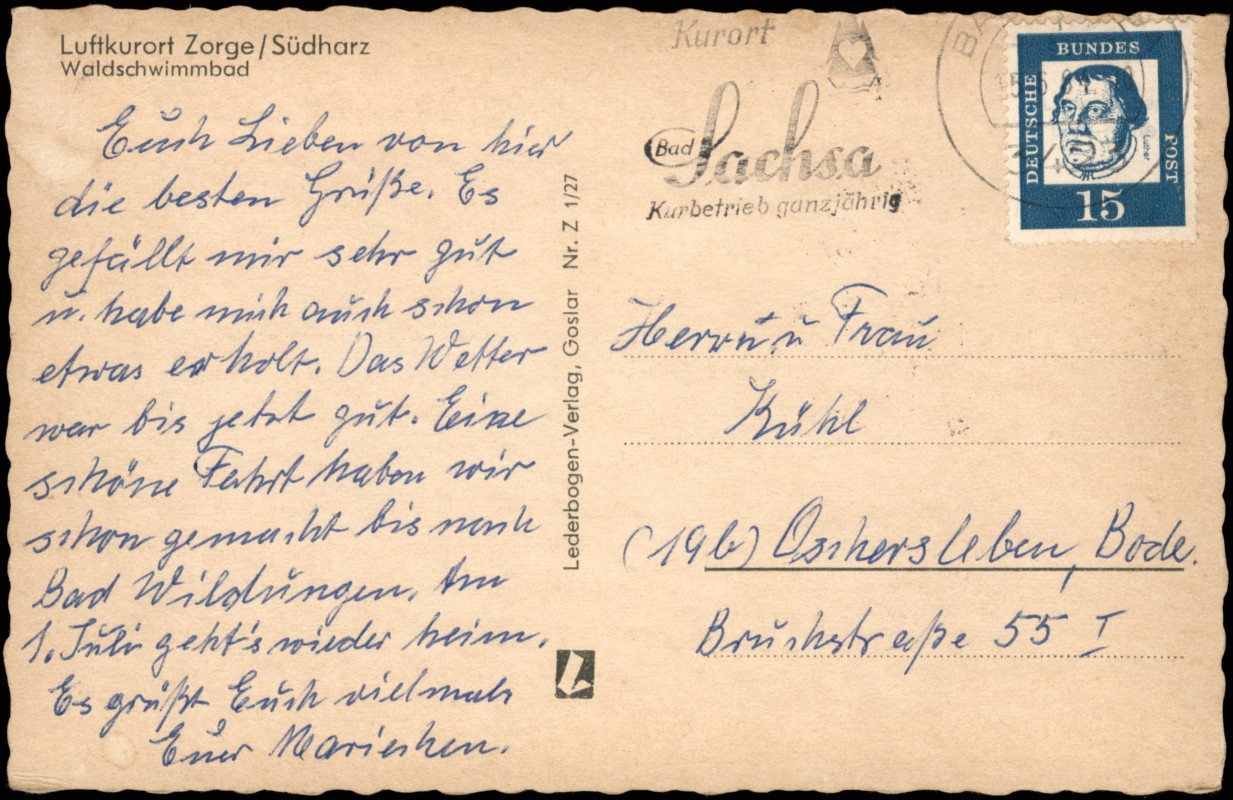 Luftkurort Zorge/Südharz
Waldschwimmbad
Euch Lieben von hier
die besten Grüße. Es
gefällt mir sehr gut
u. habe mich auch schon
etwas erholt. Das Wetter
war bis jetzt gut. Eine
schöne Fahrt haben wir
schon gemacht bis nach
Bad Wildungen. Am
1. Juli geht's wieder heim.
Es grüßt Euch vielmals
Euer Mariechen.
Lederbogen-Verlag, Goslar Nr. Z 1/27
Kurort
Bad Sachsa
Kurbetrieb ganzjährig
DEUTSCHE
BUNDES
POST
Luther
15
Herrn u. Frau
Kühl
(19b) Oschersleben, Bode.
Bruchstraße 55 I